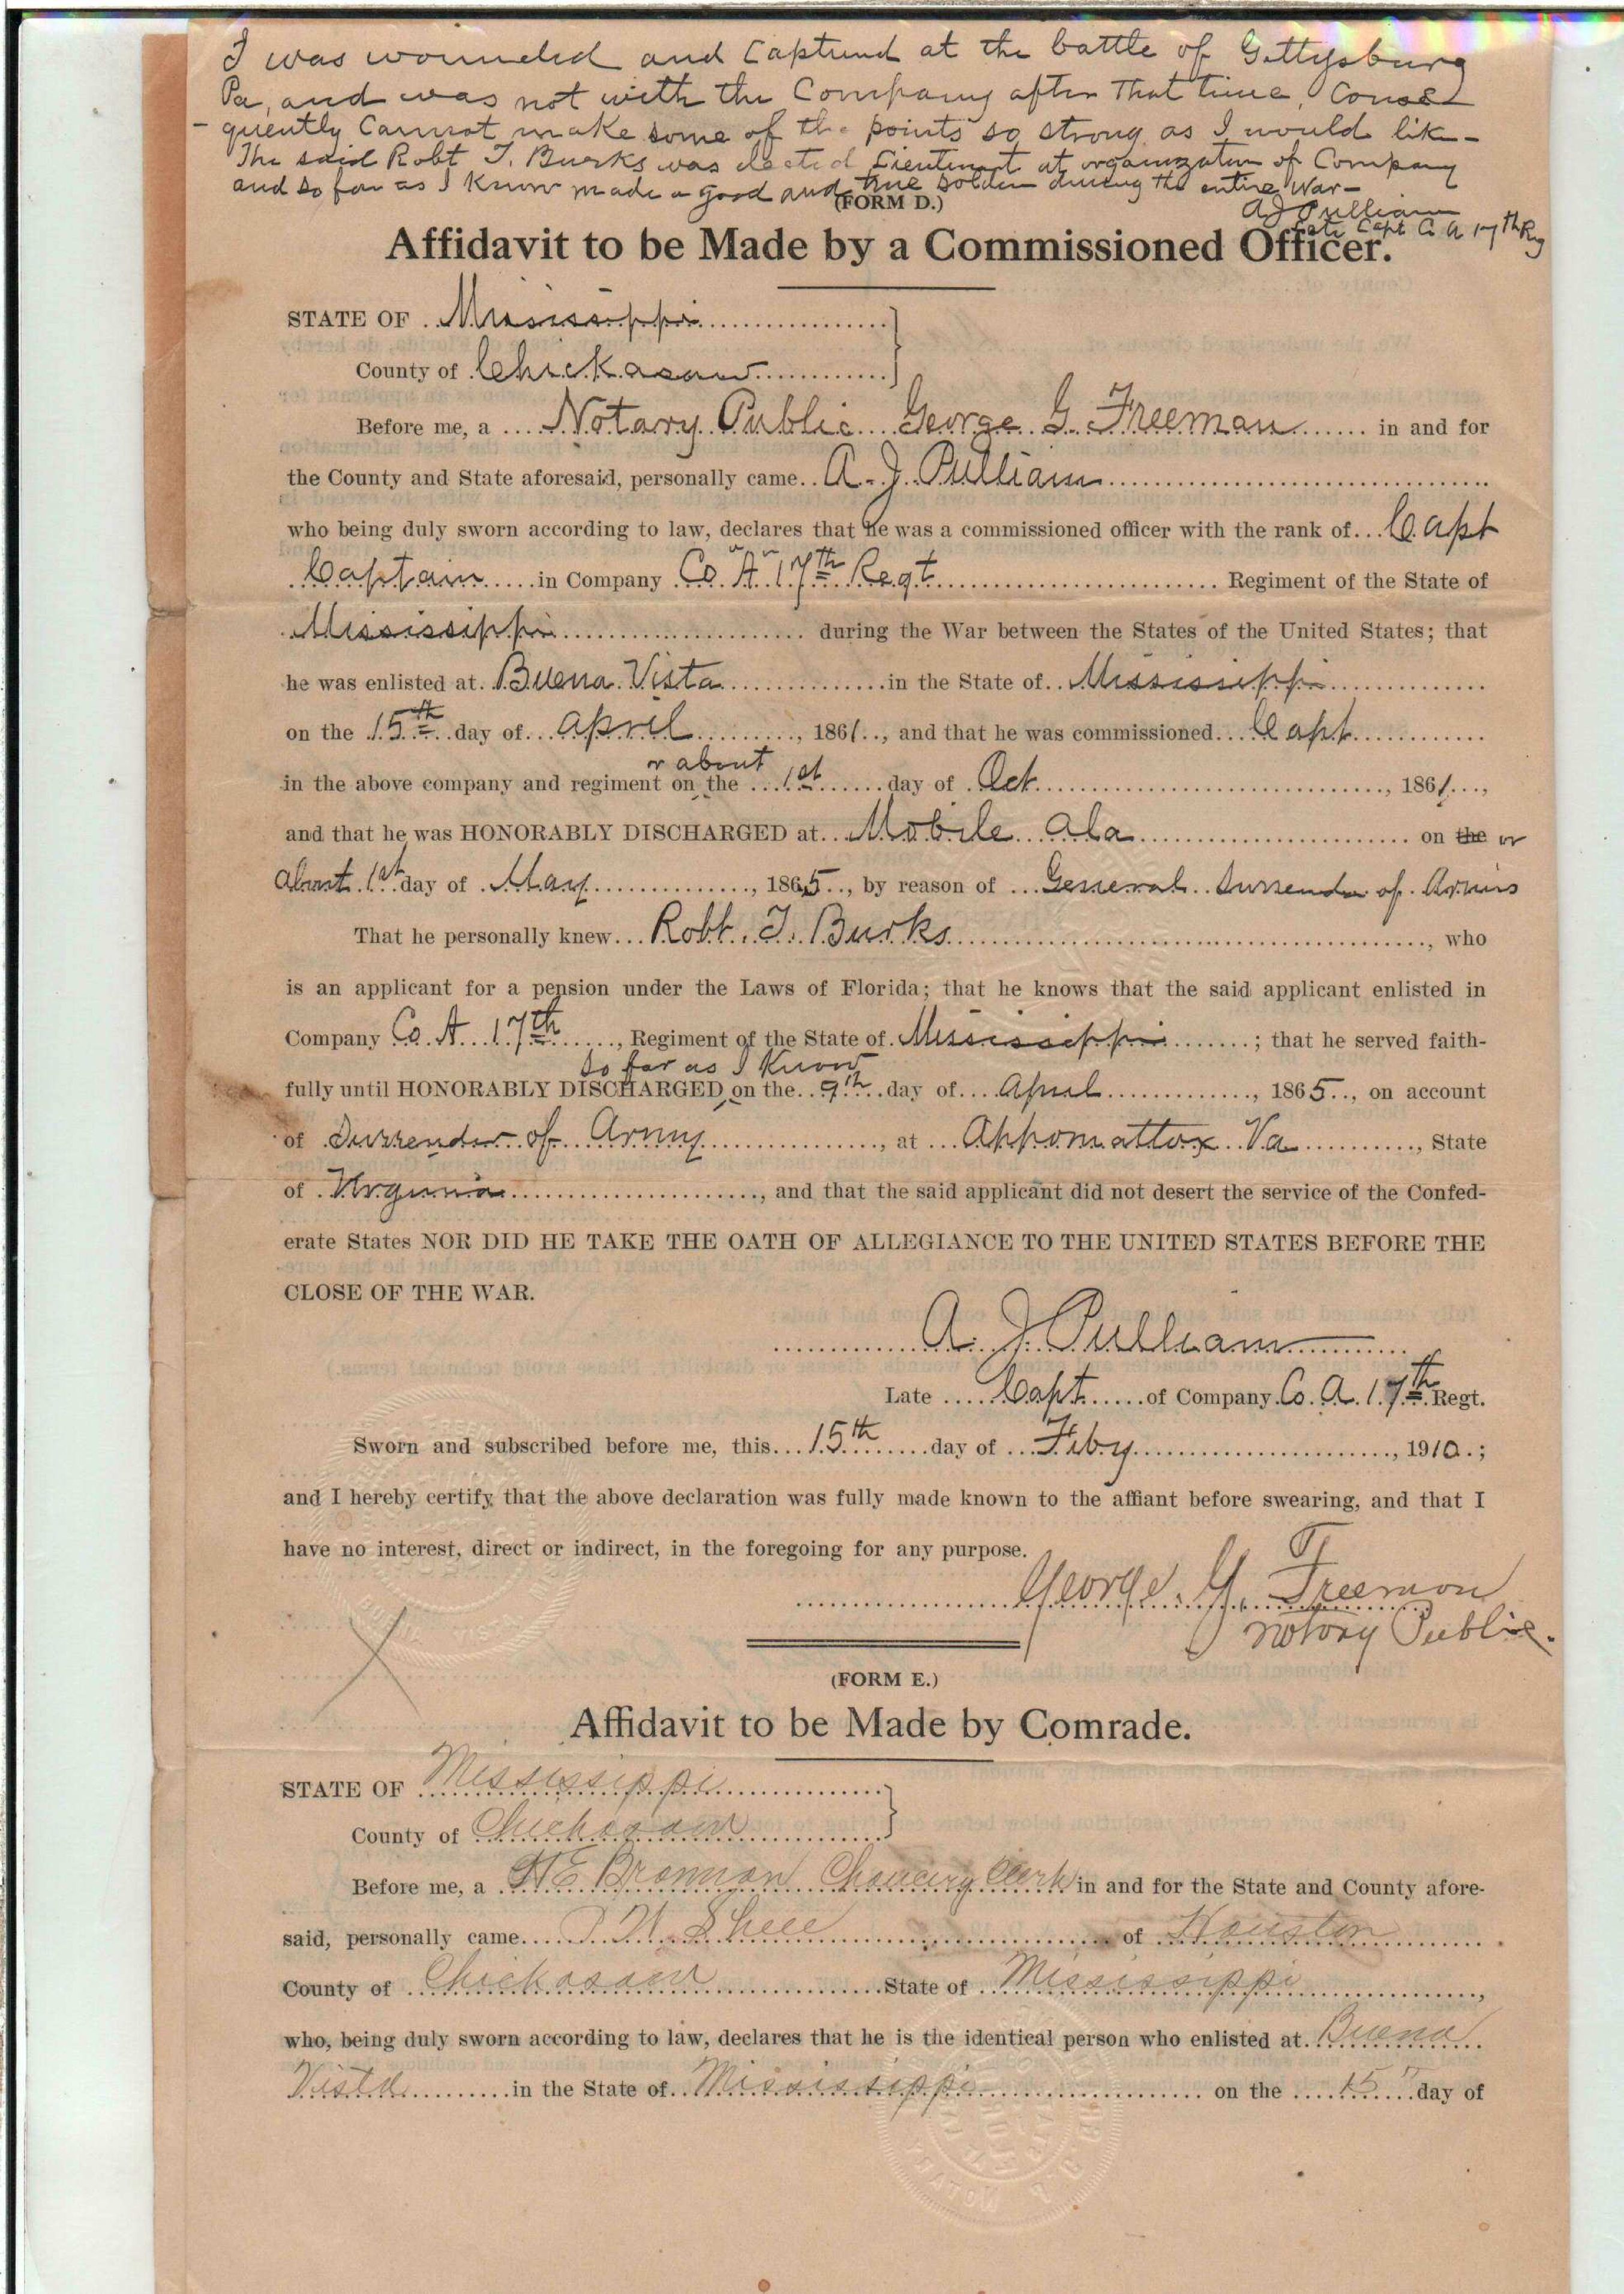 I was wounded and Captured at the battle of Gettysburg
Pa, and was not with the Company after That time, Conse
- quently Cannot make some of the points so strong as I would lik-
The said Robt T. Burks was elected Lieutenant at organization of Company
and so far as I Know made a good and true soldier during the entire War-
(FORM D.)
A J Pulliam
Late Capt Co A 17th Reg
Affidavit to be Made by a Commissioned Officer.
STATE OF Mississippi
County of Chickasaw
Before me, a Notary Public George G. Freeman in and for
the County and State aforesaid, personally came A. J. Pulliam
who being duly sworn according to law, declares that he was a commissioned officer with the rank of Capt
Captain in Company Co "A" 17th Regt Regiment of the State of
Mississippi during the War between the States of the United States; that
he was enlisted at Buena Vista in the State of Mississippi
on the 15th day of April, 1861, and that he was commissioned Capt
or about
in the above company and regiment on the 1st day of Oct, 1861,
and that he was HONORABLY DISCHARGED at Mobile Ala on the or
about 1st day of May, 1865, by reason of General Surrender of Armies
That he personally knew Robt. T. Burks, who
is an applicant for a pension under the Laws of Florida; that he knows that the said applicant enlisted in
Company Co. A. 17th, Regiment of the State of Mississippi; that he served faith-
so far as I Know
fully until HONORABLY DISCHARGED on the 9th day of April, 1865, on account
of Surrender of Army, at Appomattox Va, State
of Virginia, and that the said applicant did not desert the service of the Confed-
erate States NOR DID HE TAKE THE OATH OF ALLEGIANCE TO THE UNITED STATES BEFORE THE
CLOSE OF THE WAR.
A. J. Pulliam
Late Capt. of Company Co. A. 17th Regt.
Sworn and subscribed before me, this 15th day of Feby, 1910;
and I hereby certify that the above declaration was fully made known to the affiant before swearing, and that I
have no interest, direct or indirect, in the foregoing for any purpose.
George G. Freeman
Notary Public.
(FORM E.)
Affidavit to be Made by Comrade.
STATE OF Mississippi
County of Chickasaw
Before me, a Chancery Clerk in and for the State and County afore-
said, personally came of Houston
County of Chickasaw State of Mississippi,
who, being duly sworn according to law, declares that he is the identical person who enlisted at Buena
Vista in the State of Mississippi on the 15" day of